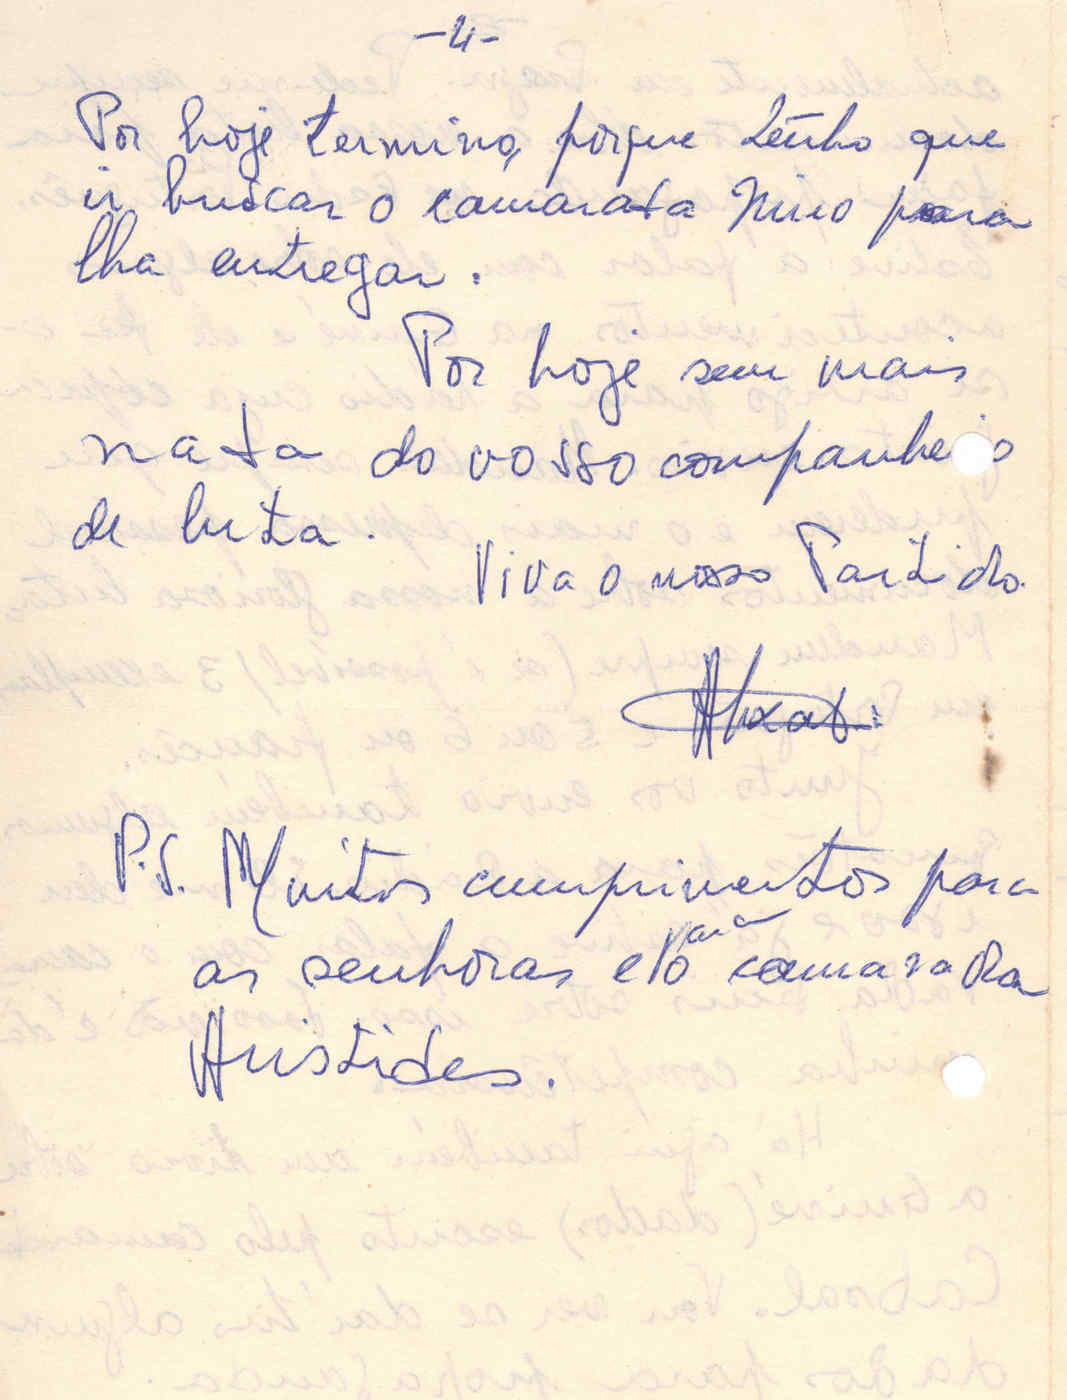 -4-
Por hoje termino, porque tenho que
ir buscar o camarata Nino para
lha entregar.
Por hoje sem mais
nata do vosso companhei o
de luta.
Viva o nosso Partido.
P.S. Muitos cumprimentos para
as senhoras e para o camarada
Aristides.